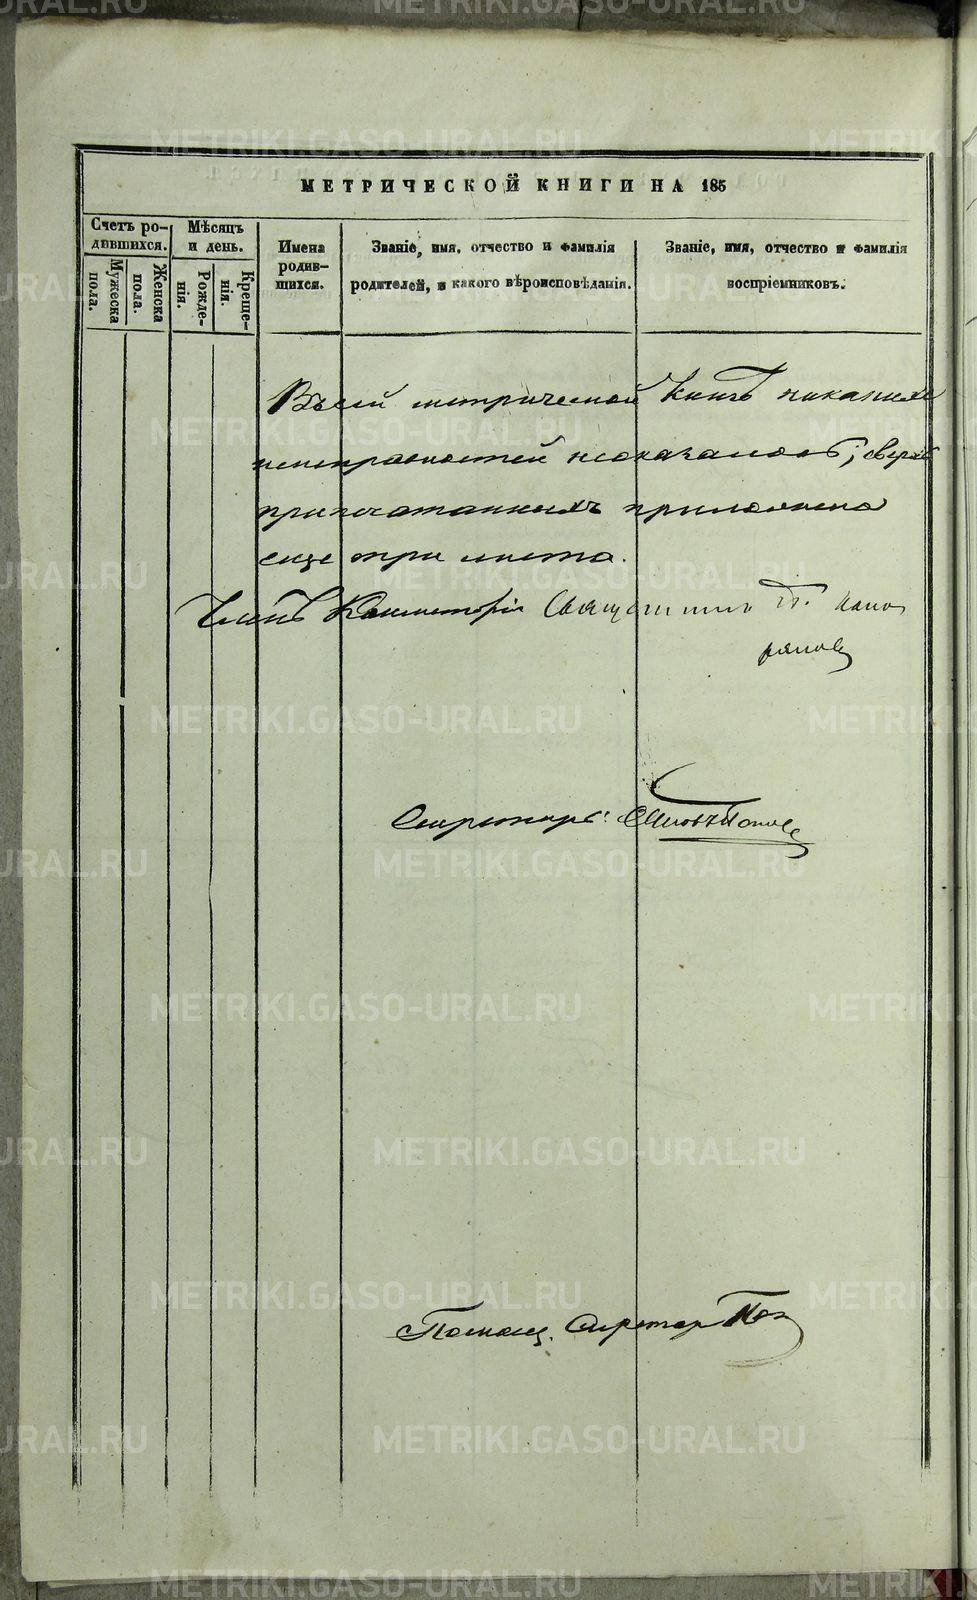 МЕТРИЧЕСКОЙ КНИГИ НА 185
Счетъ ро-
дившихся.
Мѣсяцъ
и день.
Имена
родив-
шихся.
Званіе, имя, отчество и фамилія
родителей, и какого вѣроисповѣданія.
Званіе, имя, отчество и фамилія
воспріемниковъ.
Мужеска
пола.
Женска
пола.
Рожде-
нія.
Креще-
нія.
Въ сей метрической книгѣ никакихъ
неисправностей неоказалось; сверхъ
припечатанныхъ приложено
еще три листа.
Членъ Консисторіи Священникъ
Секретарь:
Помощ. Секретар
METRIKI.GASO-URAL.RU